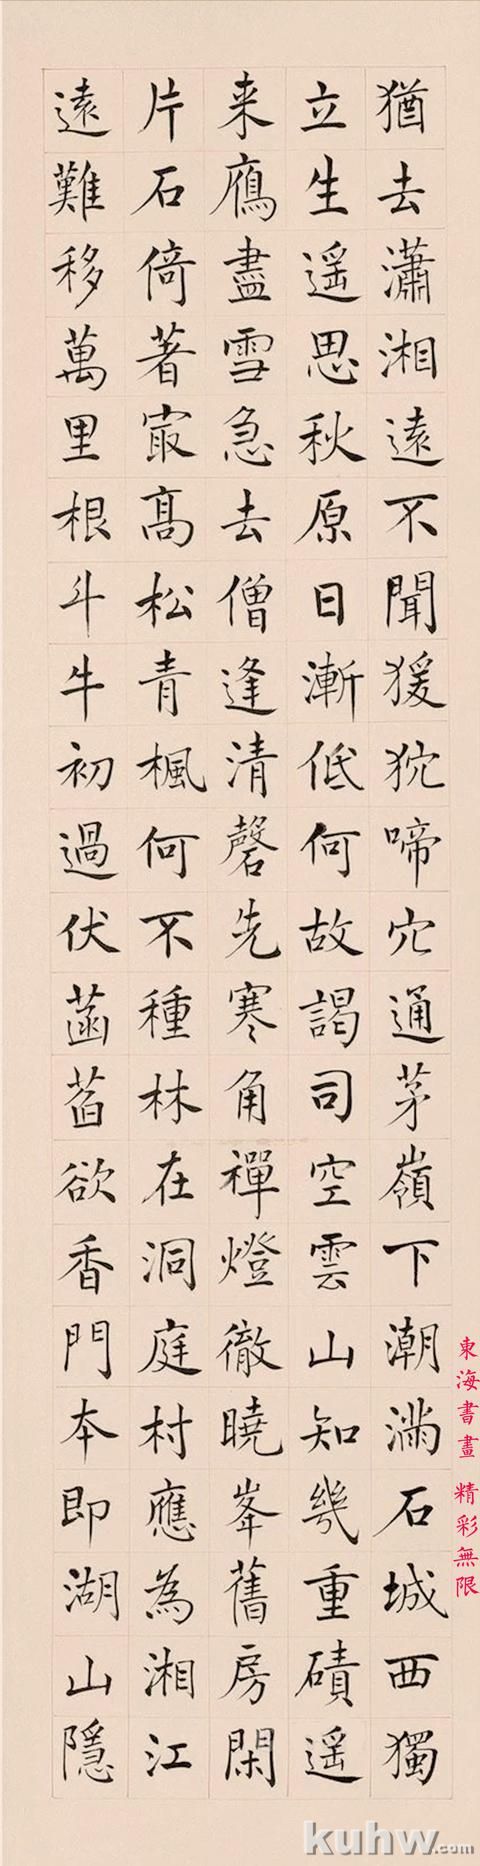 猶去瀟湘遠不聞猨狖啼穴通茅嶺下潮滿石城西獨
立生遥思秋原日漸低何故謁司空雲山知幾重磧遥
来鴈盡雪急去僧逢清磬先寒角禪燈徹曉峯舊房閑
片石倚著冣高松青楓何不種林在洞庭村應為湘江
遠難移萬里根斗牛初過伏菡萏欲香門本即湖山隱
東海書畫 精彩無限
kuhw.com